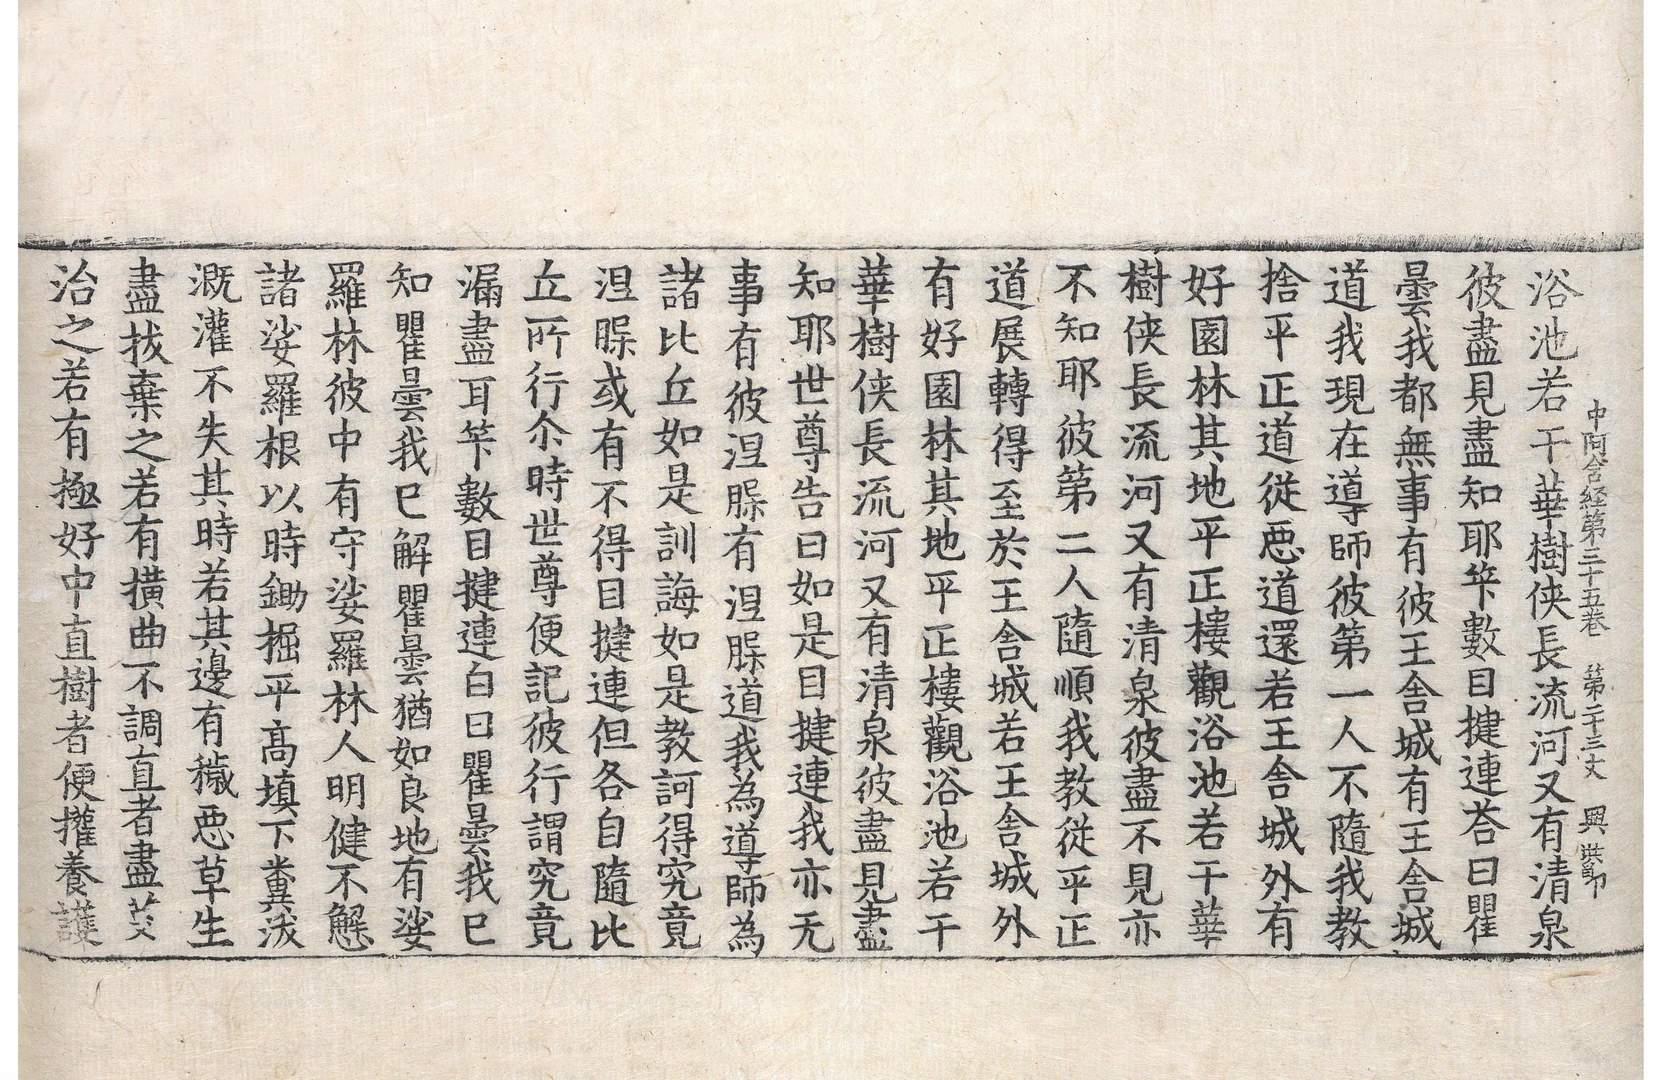 中阿含経第三十五巻 第二十三丈 興
浴池若干華樹侠長流河又有清泉
彼盡見盡知耶筭數目揵連荅曰瞿
曇我都無事有彼王舎城有王舎城
道我現在導師彼第一人不隨我教
捨平正道從悪道還若王舎城外有
好園林其地平正樓觀浴池若干華
樹侠長流河又有清泉彼盡不見亦
不知耶彼第二人隨順我教從平正
道展轉得至於王舎城若王舎城外
有好園林其地平正樓觀浴池若干
華樹侠長流河又有清泉彼盡見盡
知耶世尊告曰如是目揵連我亦无
事有彼涅槃有涅槃道我為導師為
諸比丘如是訓誨如是教訶得究竟
涅槃或有不得目揵連但各自隨比
丘所行尒時世尊便記彼行謂究竟
漏盡耳筭數目揵連白曰瞿曇我已
知瞿曇我已解瞿曇猶如良地有娑
羅林彼中有守娑羅林人明健不懈
諸娑羅根以時鋤掘平髙填下糞沃
溉灌不失其時若其邊有穢悪草生
盡拔棄之若有撗曲不調直者盡芟
治之若有極好中直樹者便擁養護